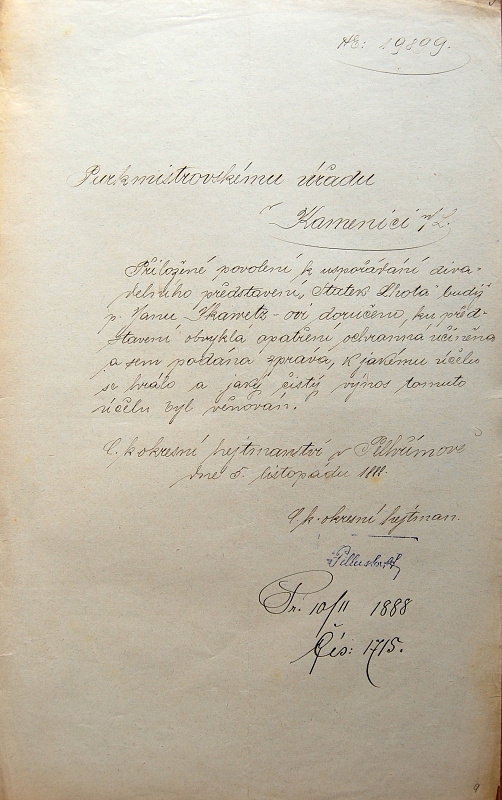 №: 19809.
Purkmistrovskému úřadu
v Kamenici n/L.
Přiložené povolení k uspořádání diva-
delního představení „Statek Lhota" budiž
p. Janu -ovi doručeno, ku před-
stavení obvyklá opatření ochranná učiněna
a sem podána zpráva, k jakému účelu
se hrálo a jaký čistý výnos tomuto
účelu byl věnován.
C. k. okresní hejtmanství v Pelhřimově
dne 5. listopádu 1888.
C. k. okresní hejtman.
Pr. 10/11 1888
Čís: 1715.
9